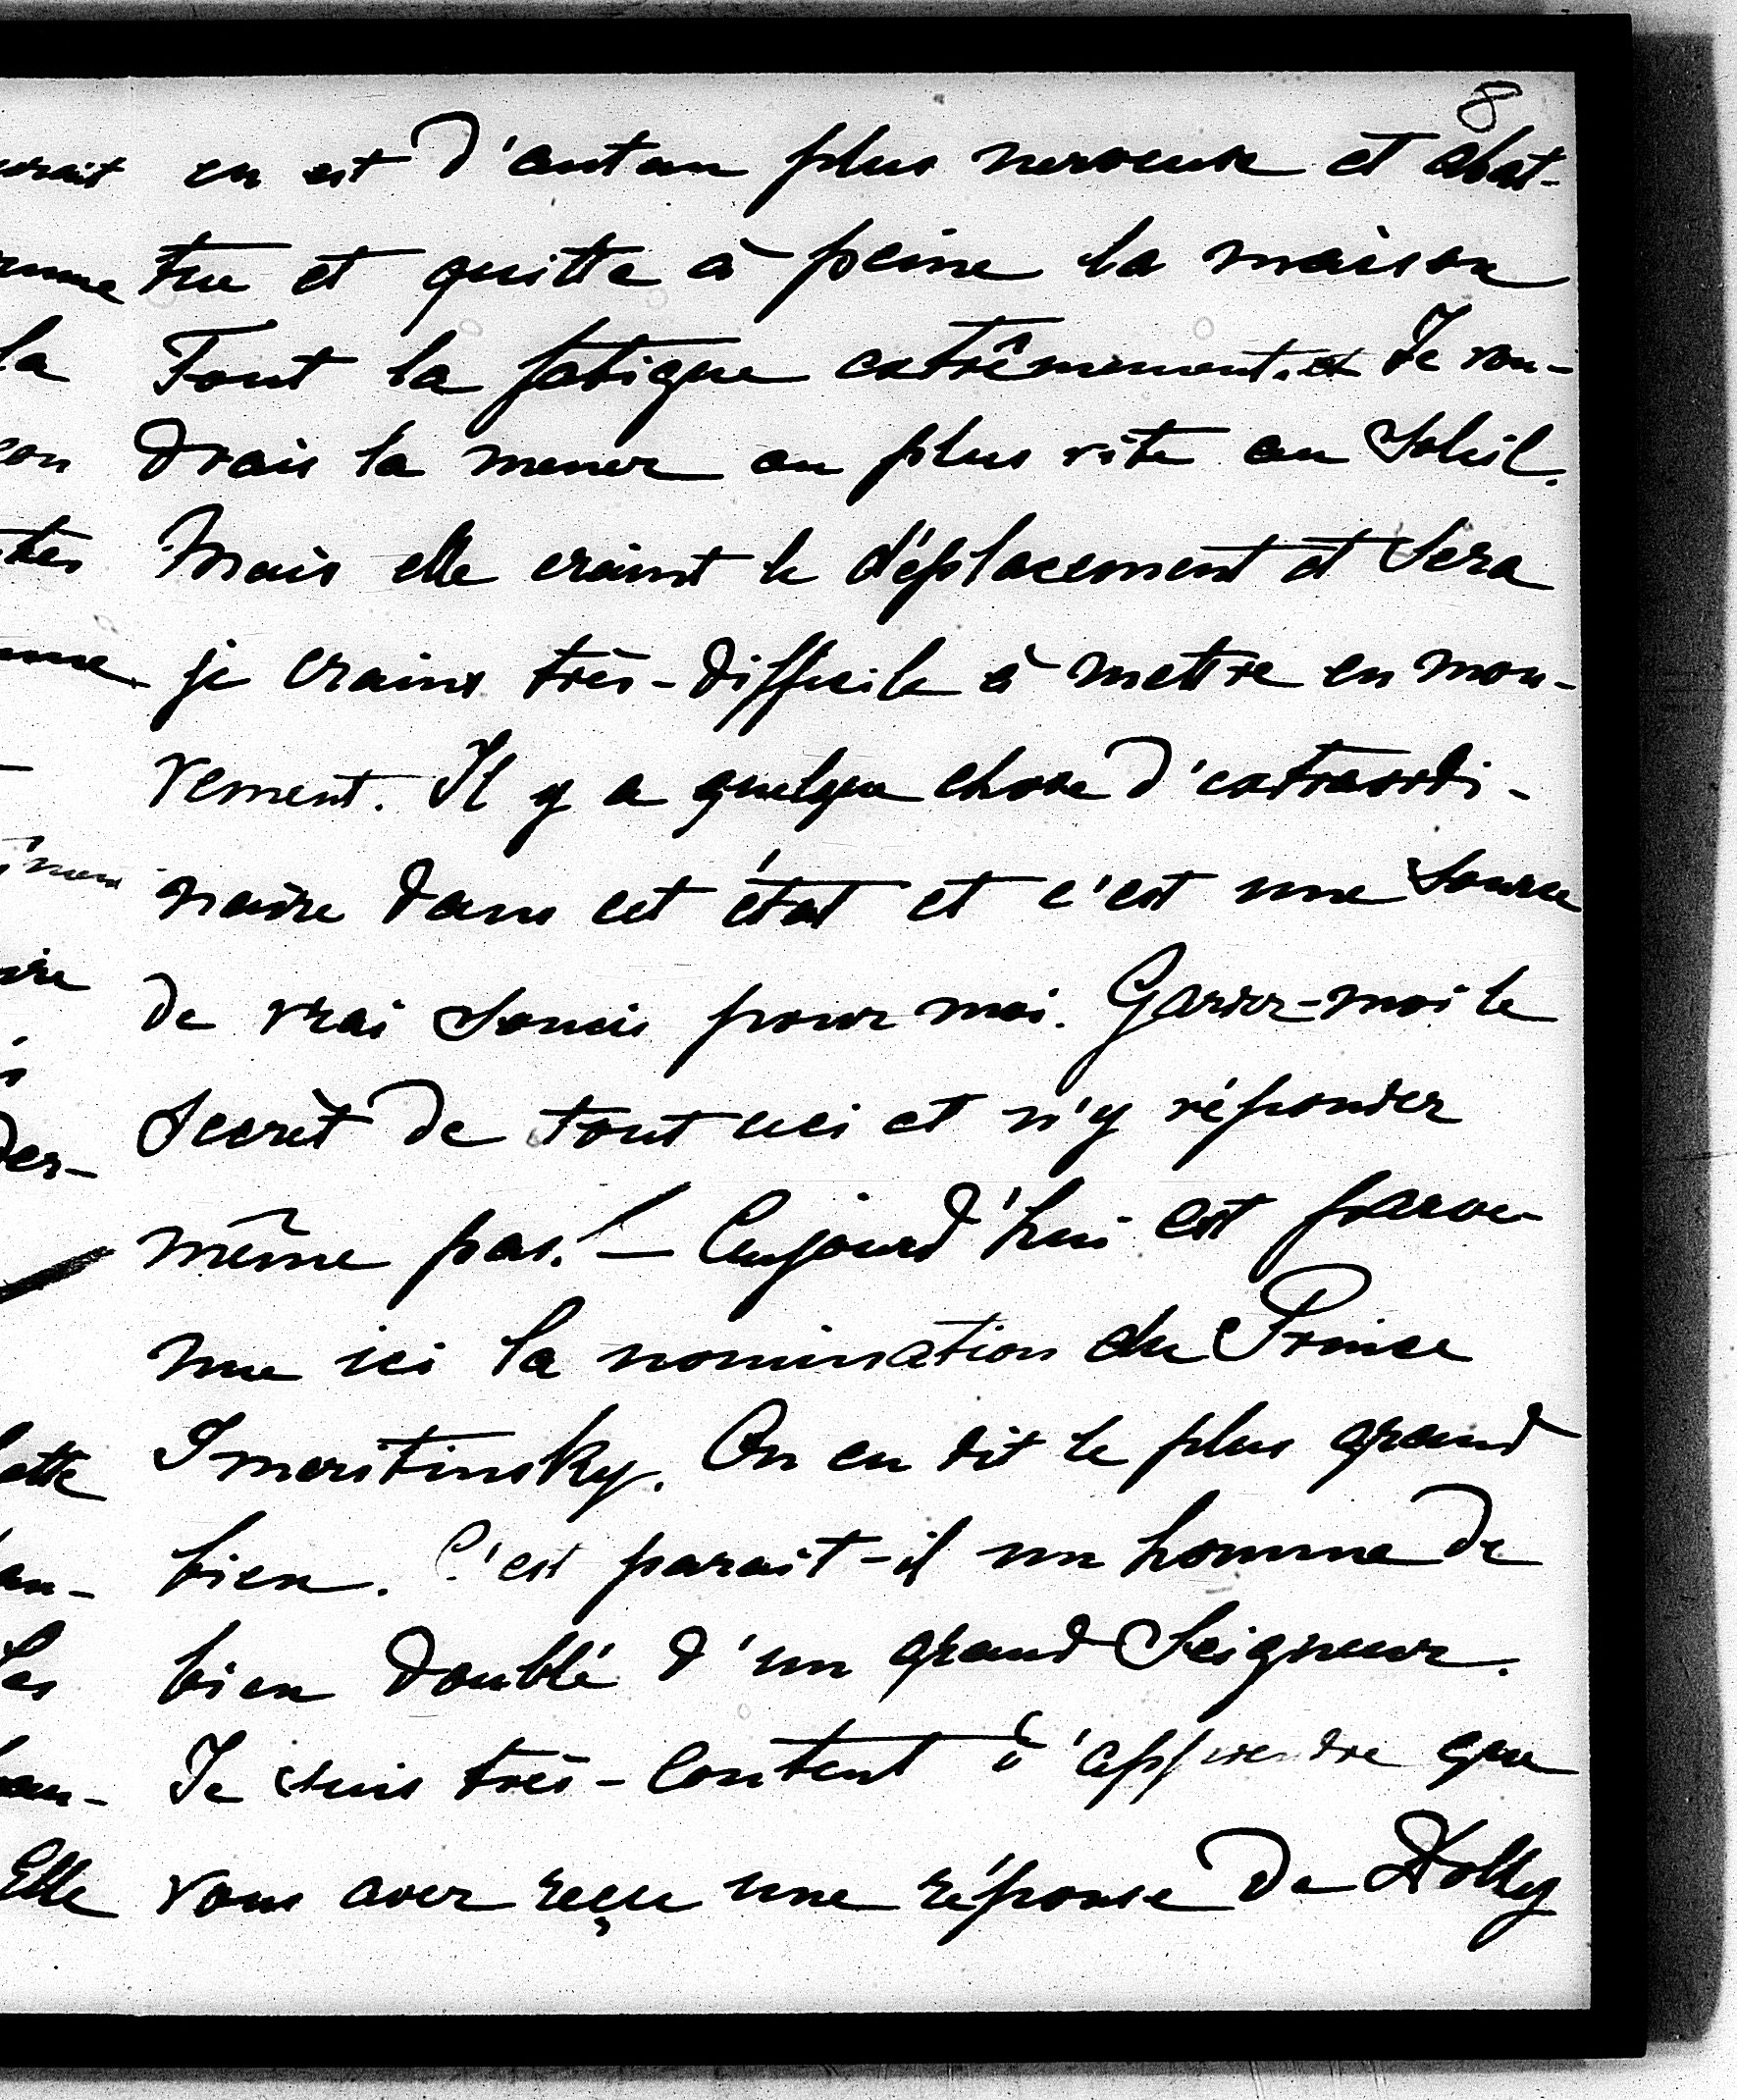 8
en est d'autan plus nerveuse et abat-
tue et quitte à peine la maison
Tout la fatigue extrêmement. Je vou-
drais la mener au plus vite au Soleil.
Mais elle craint le déplacement et sera
je crains très-difficile à mettre en mou-
vement. Il y a quelque chose d'extraordi-
naire dans cet état et c'est une source
de vrai soucis pour moi. Gardez-moi le
Secrèt de tout ceci et n'y répondez
même pas! — Aujourd'hui est parve-
nue ici la nomination du Prince
Imeritinsky. On en dit le plus grand
bien. C'est parait-il un homme de
bien doublé d'un grand Seigneur.
Je suis très-content d'apprendre que
vous avez reçu une réponse de Dolly
la
tes
der-
lette
les
Elle